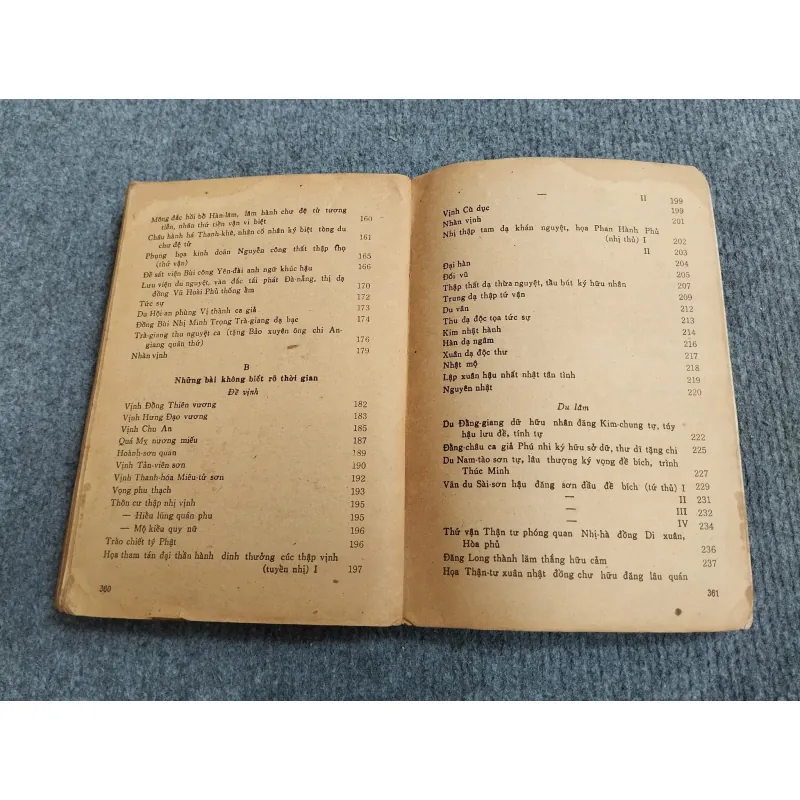 Mộng đắc hồi bồ Hàn-lâm, lâm hành chư đệ tử tương
tiễn, nhân thứ tiền vận vi biệt 160
Châu hành há Thanh-khê, nhân cố nhân ký biệt tòng du
chư đệ tử 161
Phụng họa kinh doãn Nguyễn công thất thập thọ
(thứ vận) 165
Đề sát viện Bùi công Yên-đài anh ngữ khúc hậu 166
Lưu viện du nguyệt, văn đắc tái phát Đà-nẵng, thị dạ
đồng Vũ Hoài Phủ thống ẩm 170
Tức sự 172
Du Hội-an phùng Vị thành ca giả 173
Đồng Bùi Nhị Minh Trọng Trà-giang dạ bạc 174
Trà-giang thu nguyệt ca (tặng Bảo xuyên ông chi An-
giang quân thứ) 176
Nhàn vịnh 179
B
Những bài không biết rõ thời gian
Đề vịnh
Vịnh Đồng Thiên vương 182
Vịnh Hưng Đạo vương 183
Vịnh Chu An 185
Quá Mỵ nương miếu 187
Hoành-sơn quan 189
Vịnh Tản-viên sơn 190
Vịnh Thanh-hóa Miêu-tử sơn 192
Vọng phu thạch 193
Thôn cư thập nhị vịnh 195
— Hiểu lũng quán phu 195
— Mộ kiều quy nữ 196
Trào chiết tý Phật 196
Họa tham tán đại thần hành dinh thưởng cúc thập vịnh
(tuyển nhị) I 197
360
— II 199
Vịnh Cù dục 199
Nhàn vịnh 201
Nhị thập tam dạ khán nguyệt, họa Phan Hành Phủ
(nhị thủ) I 202
II 203
Đại hàn 204
Đối vũ 205
Thập thất dạ thừa nguyệt, tẩu bút ký hữu nhân 207
Trung dạ thập tứ vận 209
Du vân 212
Thu dạ độc tọa tức sự 213
Kim nhật hành 214
Hàn dạ ngâm 216
Xuân dạ độc thư 217
Nhật mộ 218
Lập xuân hậu nhất nhật tân tình 219
Nguyên nhật 220
Du lãm
Du Đằng-giang dữ hữu nhân đăng Kim-chung tự, túy
hậu lưu đề, tính tự 222
Đằng-châu ca giả Phú nhi ký hữu sở dữ, thư dĩ tặng chi 225
Du Nam-tào sơn tự, lâu thượng ký vọng đề bích, trình
Thúc Minh 227
Vãn du Sài-sơn hậu đăng sơn đầu đề bích (tứ thủ) I 229
— II 231
— III 232
— IV 234
Thứ vận Thận tư phóng quan Nhị-hà đồng Di xuân,
Hòa phủ 236
Đăng Long thành lãm thắng hữu cảm 237
Họa Thận-tư xuân nhật đồng chư hữu đăng lâu quán
361